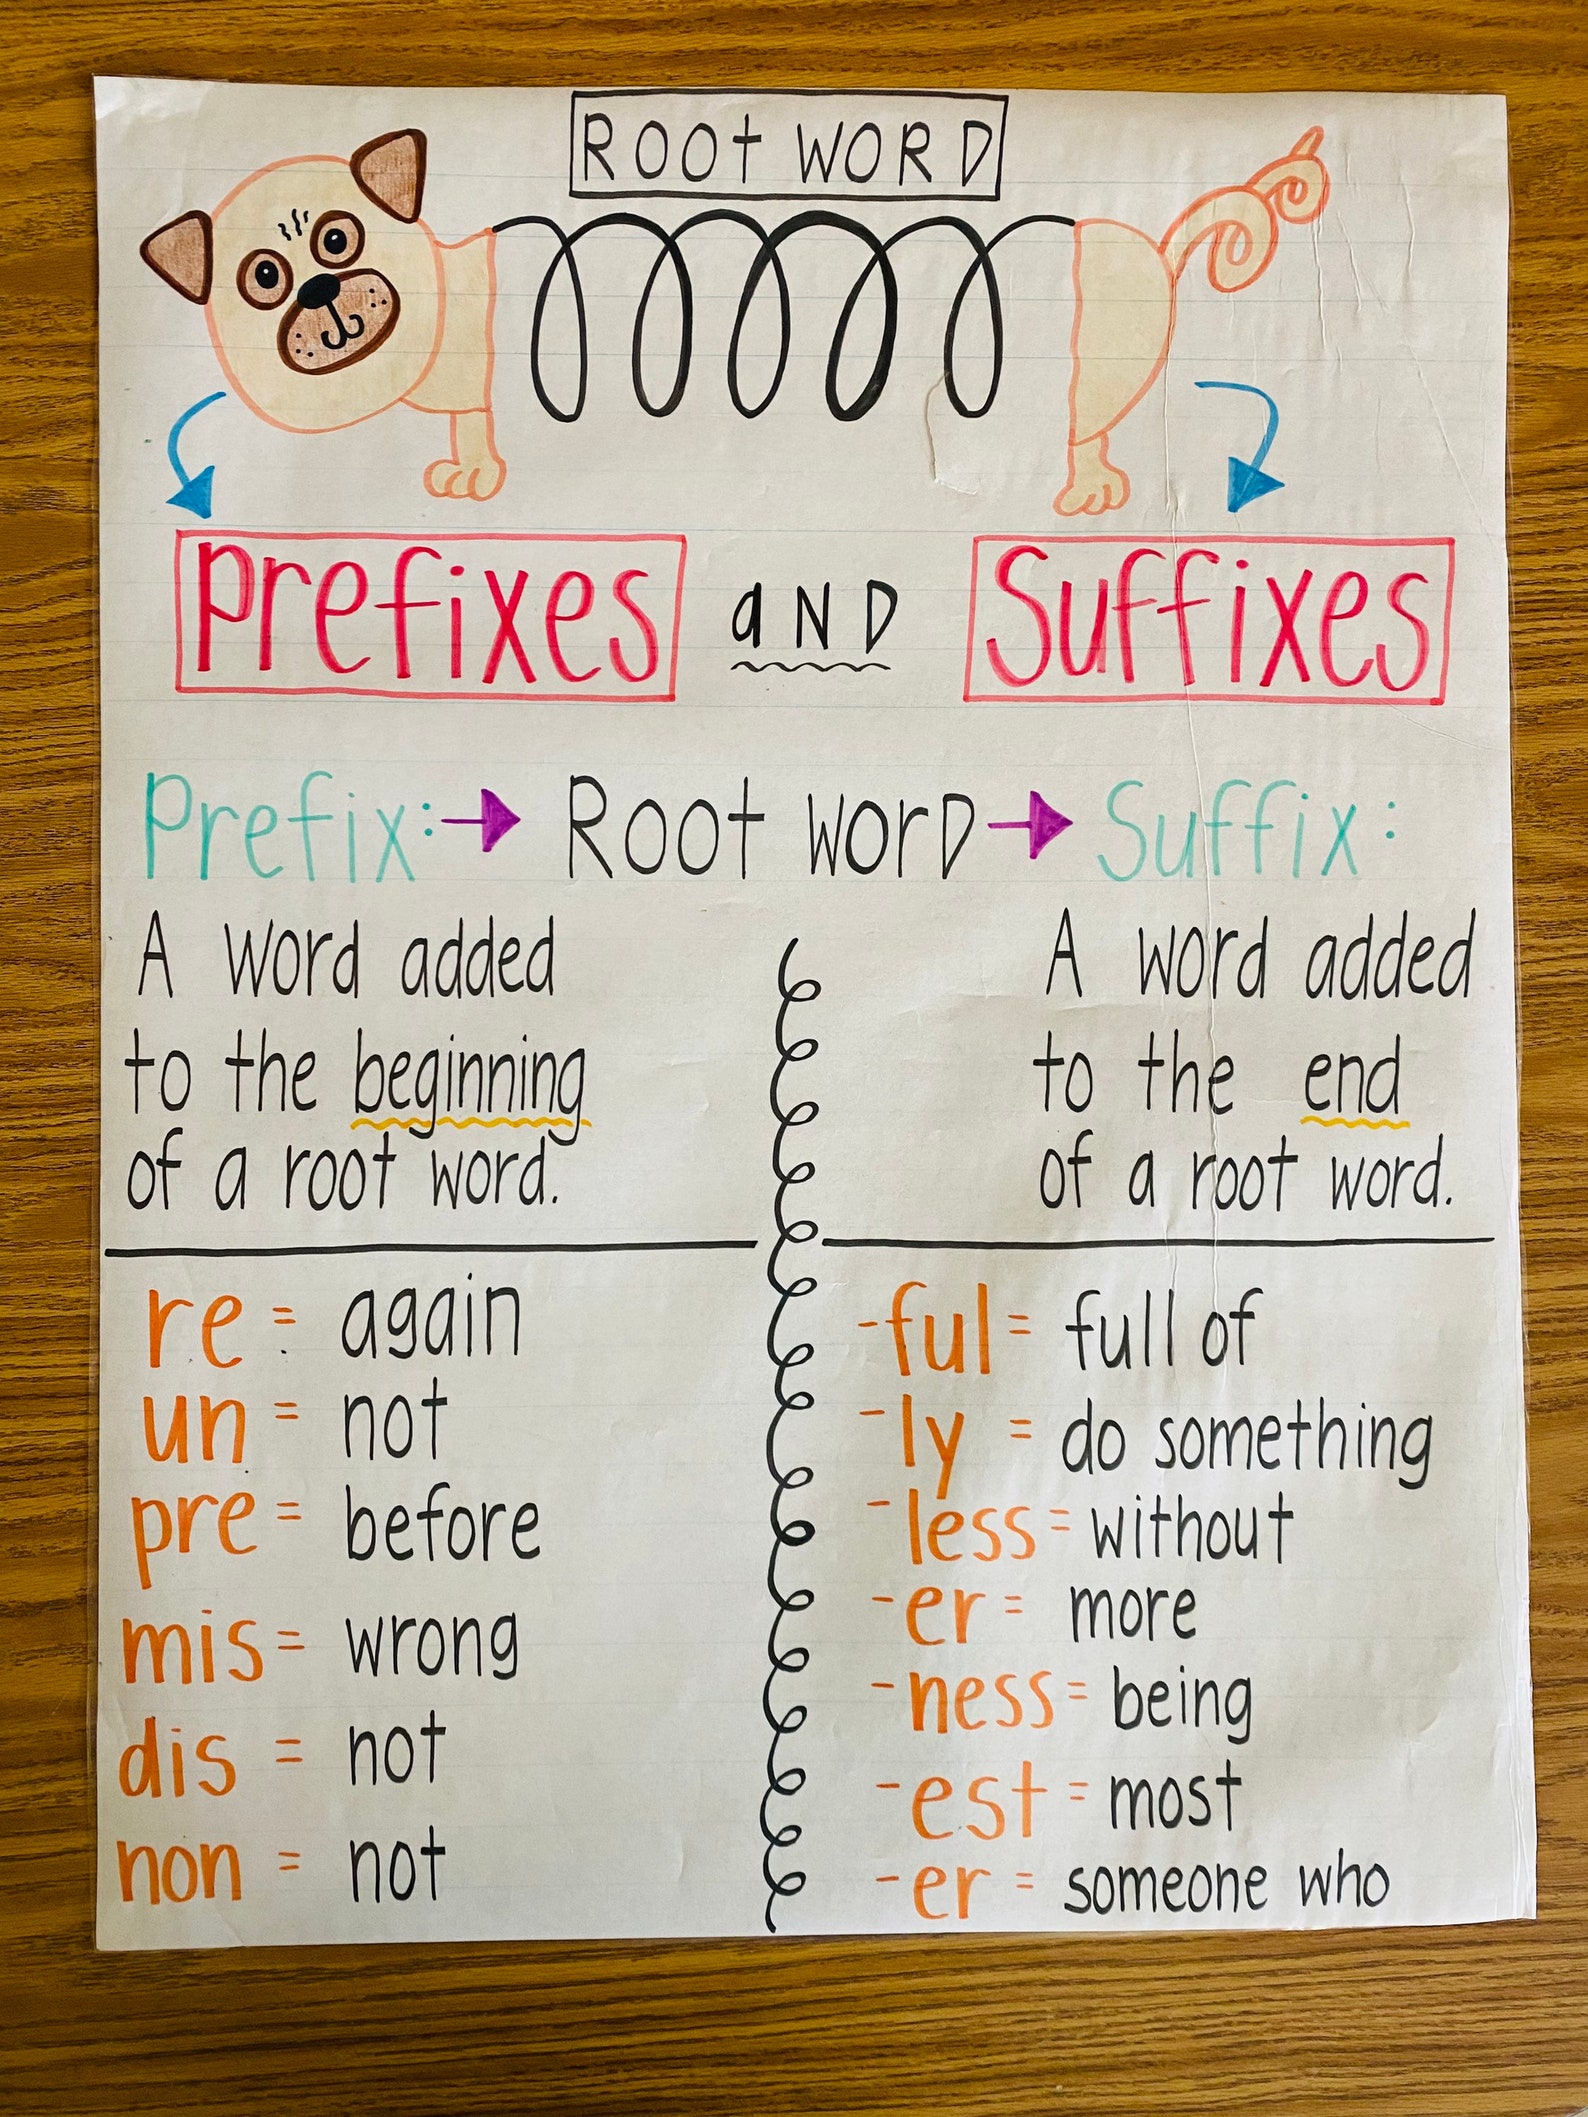 ROOT WORD
Prefixes AND Suffixes
Prefix: → Root Word → Suffix:
A word added
to the beginning
of a root word.
A word added
to the end
of a root word.
re = again
un = not
pre = before
mis = wrong
dis = not
non = not
-ful = full of
-ly = do something
-less = without
-er = more
-ness = being
-est = most
-er = someone who